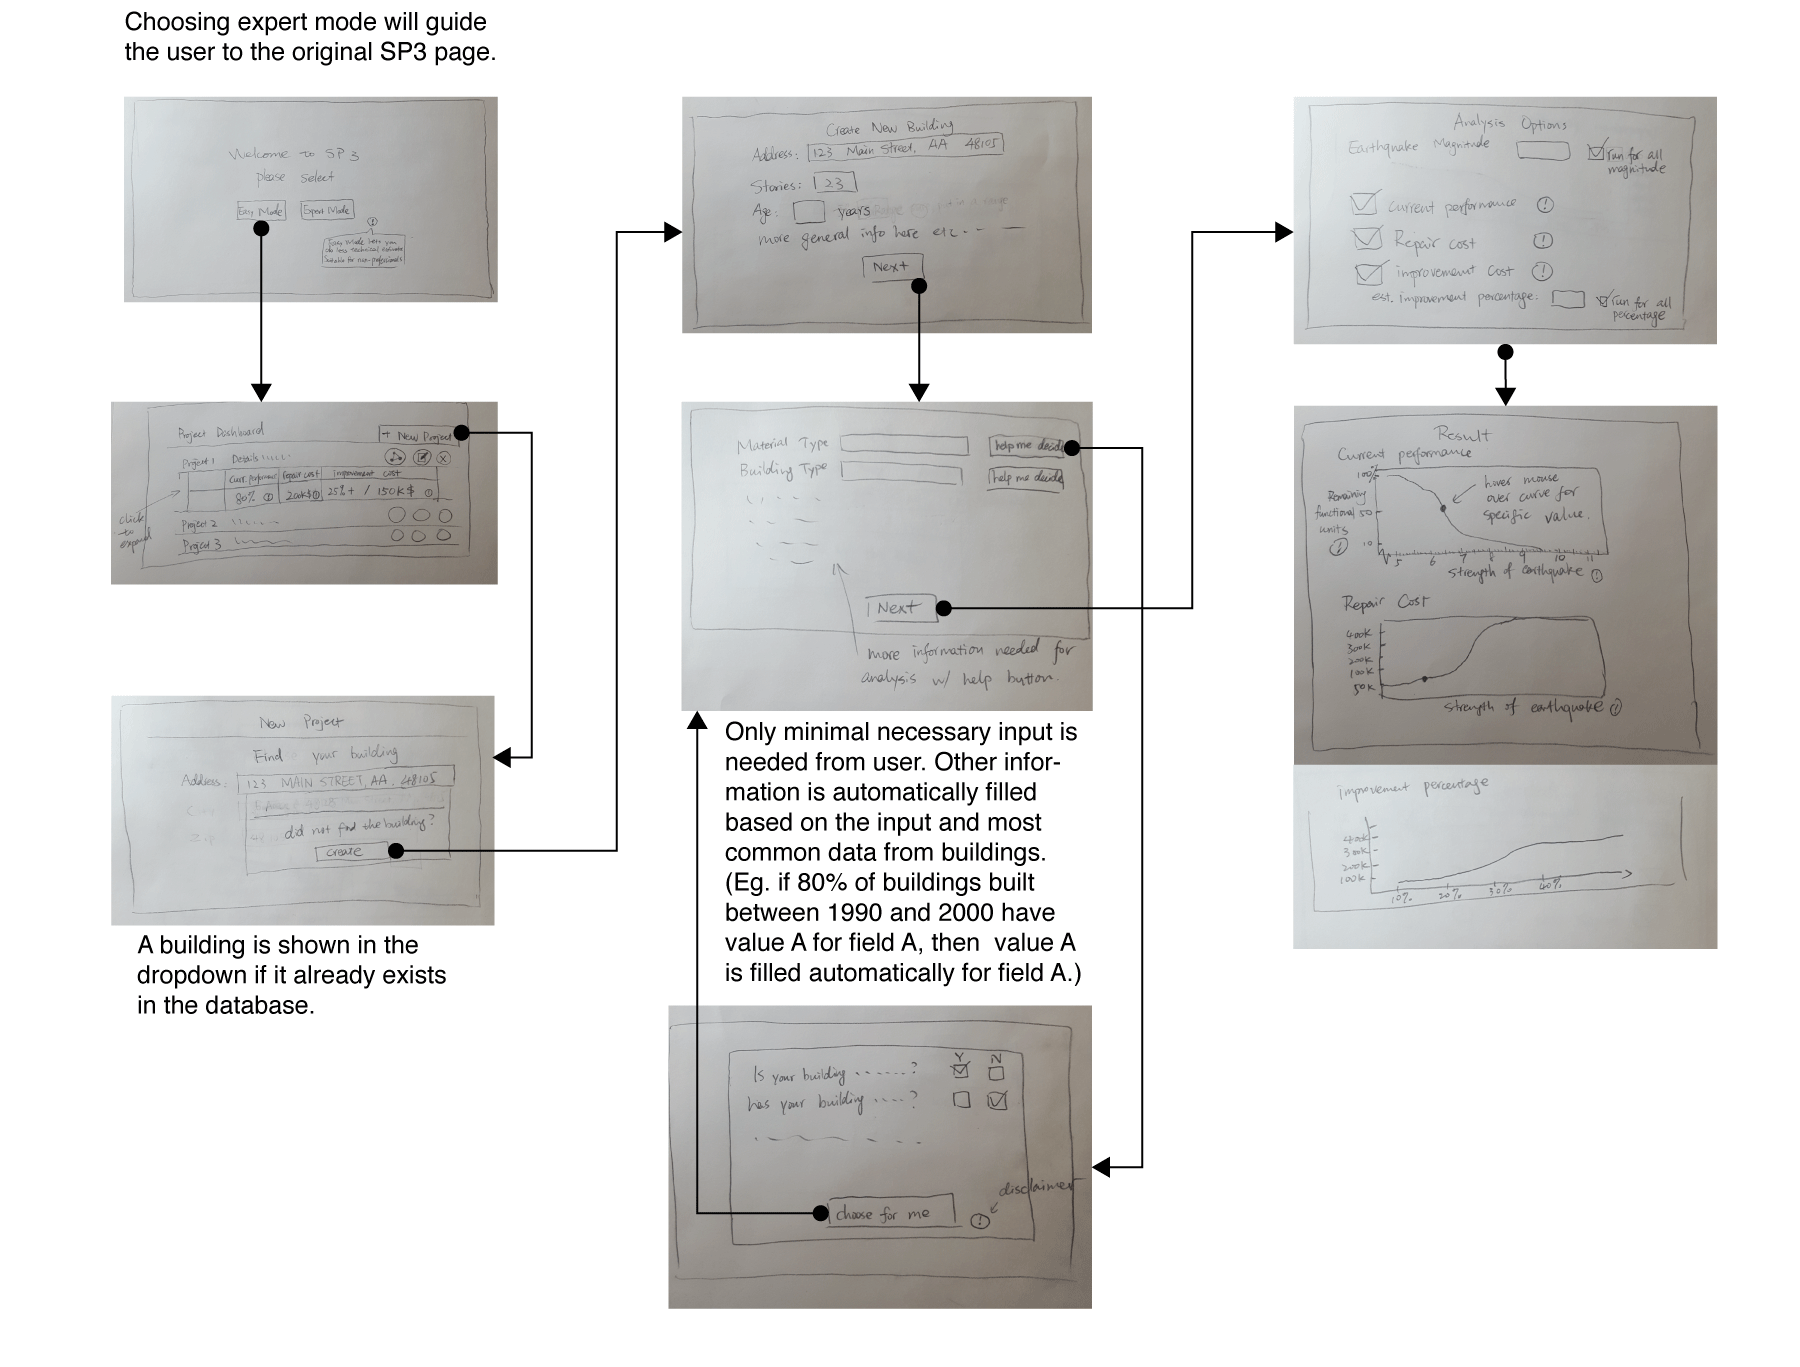 Choosing expert mode will guide
the user to the original SP3 page.
Welcome to SP3
please select
Easy Mode
Expert Mode
Easy Mode lets you
do less technical estimate
Suitable for non-professionals
Project Dashboard
+ New Project
Project 1 Details
Curr. performance
Repair cost
improvement cost
80%
200k$
25%+ / 150K$
click
to
expand
Project 2
Project 3
New Project
Find your building
Address: 123 MAIN STREET, AA. 48105
did not find the building?
create
A building is shown in the
dropdown if it already exists
in the database.
Create New Building
Address: 123 Main Street, AA 48105
Stories: 23
Age: years
more general info here etc
Next
Material Type
help me decide
Building Type
help me decide
Next
more information needed for
analysis w/ help button.
Only minimal necessary input is
needed from user. Other infor-
mation is automatically filled
based on the input and most
common data from buildings.
(Eg. if 80% of buildings built
between 1990 and 2000 have
value A for field A, then value A
is filled automatically for field A.)
Y N
Is your building ......?
has your building ....?
disclaimer
choose for me
Analysis Options
Earthquake Magnitude
run for all
magnitude
Current performance
Repair cost
improvement cost
est. improvement percentage:
run for all
percentage
Result
Current performance
100%
Remaining
functional
units
50
10
hover mouse
over curve for
specific value.
5 6 7 8 9 10 11
strength of earthquake
Repair Cost
400k
300k
200k
100k
50k
strength of earthquake
improvement percentage
400k
300k
200k
100k
10% 20% 30% 40%